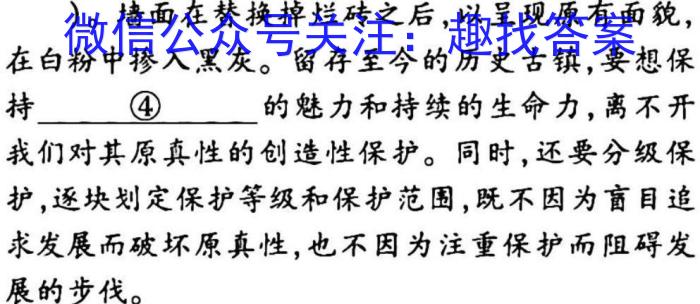 ）墙面在替换掉烂砖之后，以呈现原有面貌，
微信公众号关注：趣找答案
在白粉中掺入黑灰。留存至今的历史古镇，要想保
持④的魅力和持续的生命力，离不开
我们对其原真性的创造性保护。同时，还要分级保
护，逐块划定保护等级和保护范围，既不因为盲目追
求发展而破坏原真性，也不因为注重保护而阻碍发
展的步伐。